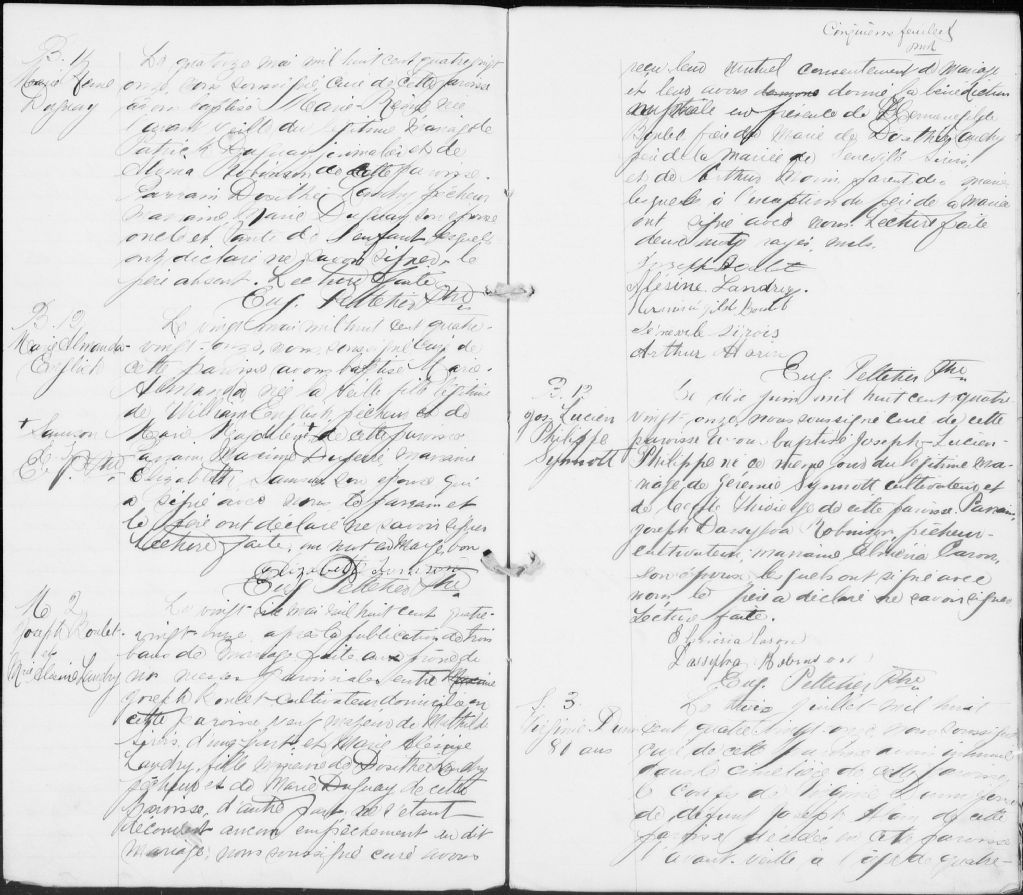 B. 11
Marie Rene
Duguay
Le quatorze mai mil huit cent quatre vingt
onze, nous soussigné, curé de cette paroisse
avons baptisé Marie-Rene née
l'avant veille du légitime mariage de
Patrick Duguay journalier et de
Robinson de cette paroisse.
Parrain Dosithé Landry pêcheur
marraine Marie Duguay son épouse
oncle et tante de l'enfant lesquels
ont déclaré ne savoir signer, le
père absent. Lecture faite.
Eug. Pelletier Ptre
B. 12
Marie Almanda
English
Le vingt mai mil huit cent quatre-
vingt-onze, nous, soussigné curé de
cette paroisse avons baptisé Marie-
Almanda née la veille fille légitime
de William English pêcheur et de
+ Samson
E. P. Ptre
Marie Magdeleine + de cette paroisse
parrain Maxime marraine
Elizabeth Samson son épouse qui
a signé avec nous le parrain et
le père ont déclaré ne savoir signer
Lecture faite, un mot en marge, bon
Elizabeth Samson
Eug. Pelletier Ptre
M. 2
Joseph Boulet
et
Marie Alesine Landry
Le vingt de mai mil huit cent quatre
vingt onze, après la publication de trois
bans de mariage faite au prône de
nos messes paroissiales entre
Joseph Boulet cultivateur domicilié en
cette paroisse veuf majeur de Mathilde
Sirois, d'une part, et Marie Alesine
Landry, fille mineure de Dosithee Landry
pêcheur et de Marie Duguay de cette
paroisse, d'autre part, ne s'étant
découvert aucun empêchement au dit
mariage, nous soussigné curé avons
Cinquième feuillet
reçu leur mutuel consentement de mariage
et leur avons donné la bénédiction
nuptiale en présence de Hermenegilde
Boulet frère du marié de Dosithée Landry
père de la mariée de Seneville Sirois
et de Arthur Morin parent du marié
lesquels à l'exception du père de la mariée
ont signé avec nous. Lecture faite
deux mots rayés nuls.
Joseph Boulet
Alésine Landry
Hermenégilde Boulet
Séneville Sirois
Arthur Morin
Eug. Pelletier Ptre
B. 13
Jos Lucien
Philippe
Synnott
Le dix juin mil huit cent quatre
vingt-onze, nous soussigné curé de cette
paroisse avons baptisé Joseph-Lucien-
Philippe né ce même jour du légitime ma-
riage de Jérémie Synnott cultivateur et
de de cette paroisse. Parrain,
Joseph Robinson, pêcheur-
cultivateur, marraine Elmina Caron,
son épouse, lesquels ont signé avec
nous le père a déclaré ne savoir signer
Lecture faite.
Elmina Caron
Robinson
Eug. Pelletier Ptre
S. 3.
Virginie
81 ans
Le trois juillet mil huit
cent quatre vingt-onze nous soussigné
curé de cette paroisse avons inhumé
dans le cimetière de cette paroisse,
le corps de Virginie
de défunt Joseph de cette
paroisse décédée en cette paroisse
l'avant-veille à l'âge de quatre-